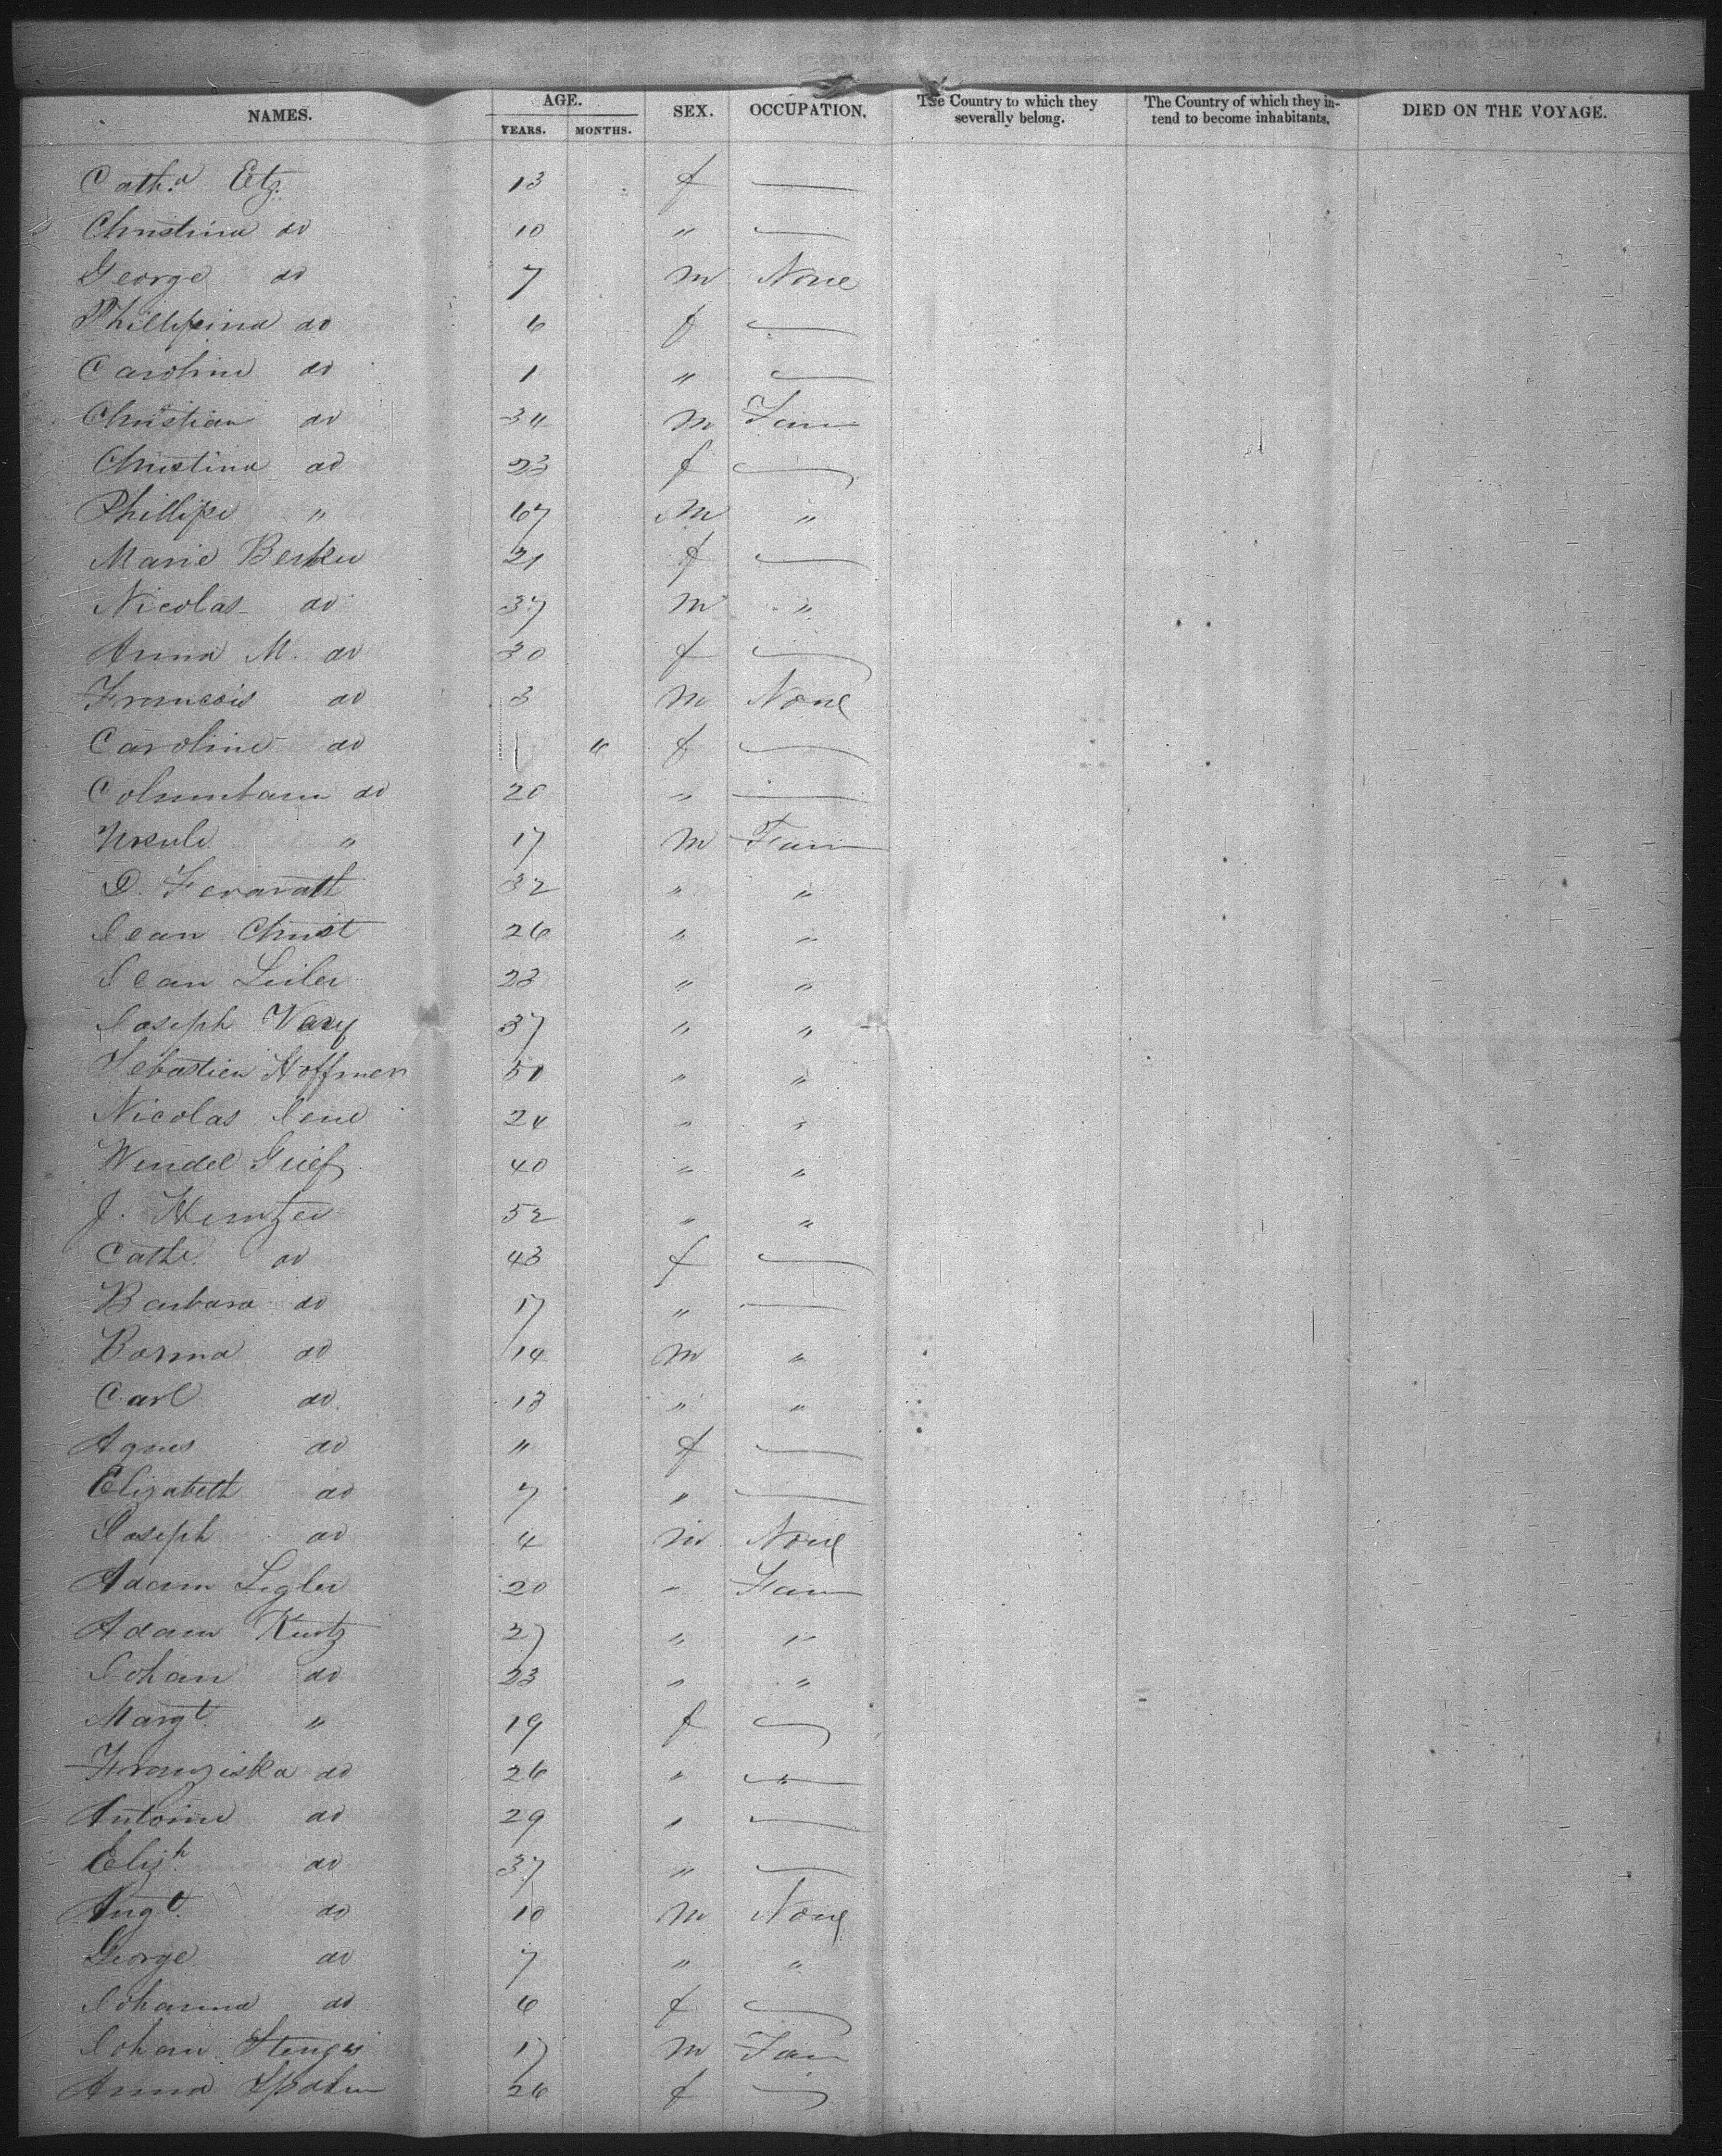 NAMES. AGE. YEARS. MONTHS. SEX. OCCUPATION. The Country to which they severally belong. The Country of which they intend to become inhabitants. DIED ON THE VOYAGE.
Cath.a Etz 13 f —
Christina do 10 " —
George do 7 m None
Phillipina do 6 f —
Caroline do 1 " —
Christian do 34 m Farm
Christina do 23 f —
Phillipe " 67 m "
Marie Berker 21 f —
Nicolas do 37 m "
Anna M. do 30 f —
Francois do 3 m None
Caroline do 6 f —
Columbani do 20 " —
Ursule " 17 m Farm
D. 32 " "
Jean Christ 26 " "
Jean Leiler 23 " "
Joseph Vary 37 " "
Sebastien Hoffmen 51 " "
Nicolas 24 " "
Wendel Grief 40 " "
J. Hentzer 52 " "
Cathe do 43 f —
Barbara do 17 " —
do 14 m "
Carl do 13 " "
Agnes do " f —
Elizabeth do 7 " —
Joseph do 4 m None
Adam Legler 20 " Farm
Adam Kurtz 27 " "
Johan do 23 " "
Margt " 19 f —
Franziska do 26 " —
Antoine do 29 " —
Elizh do 37 " —
Augt do 10 m None
George do 7 " "
Johanna do 6 f —
Johan Stenger 17 m Farm
Anna 26 f —